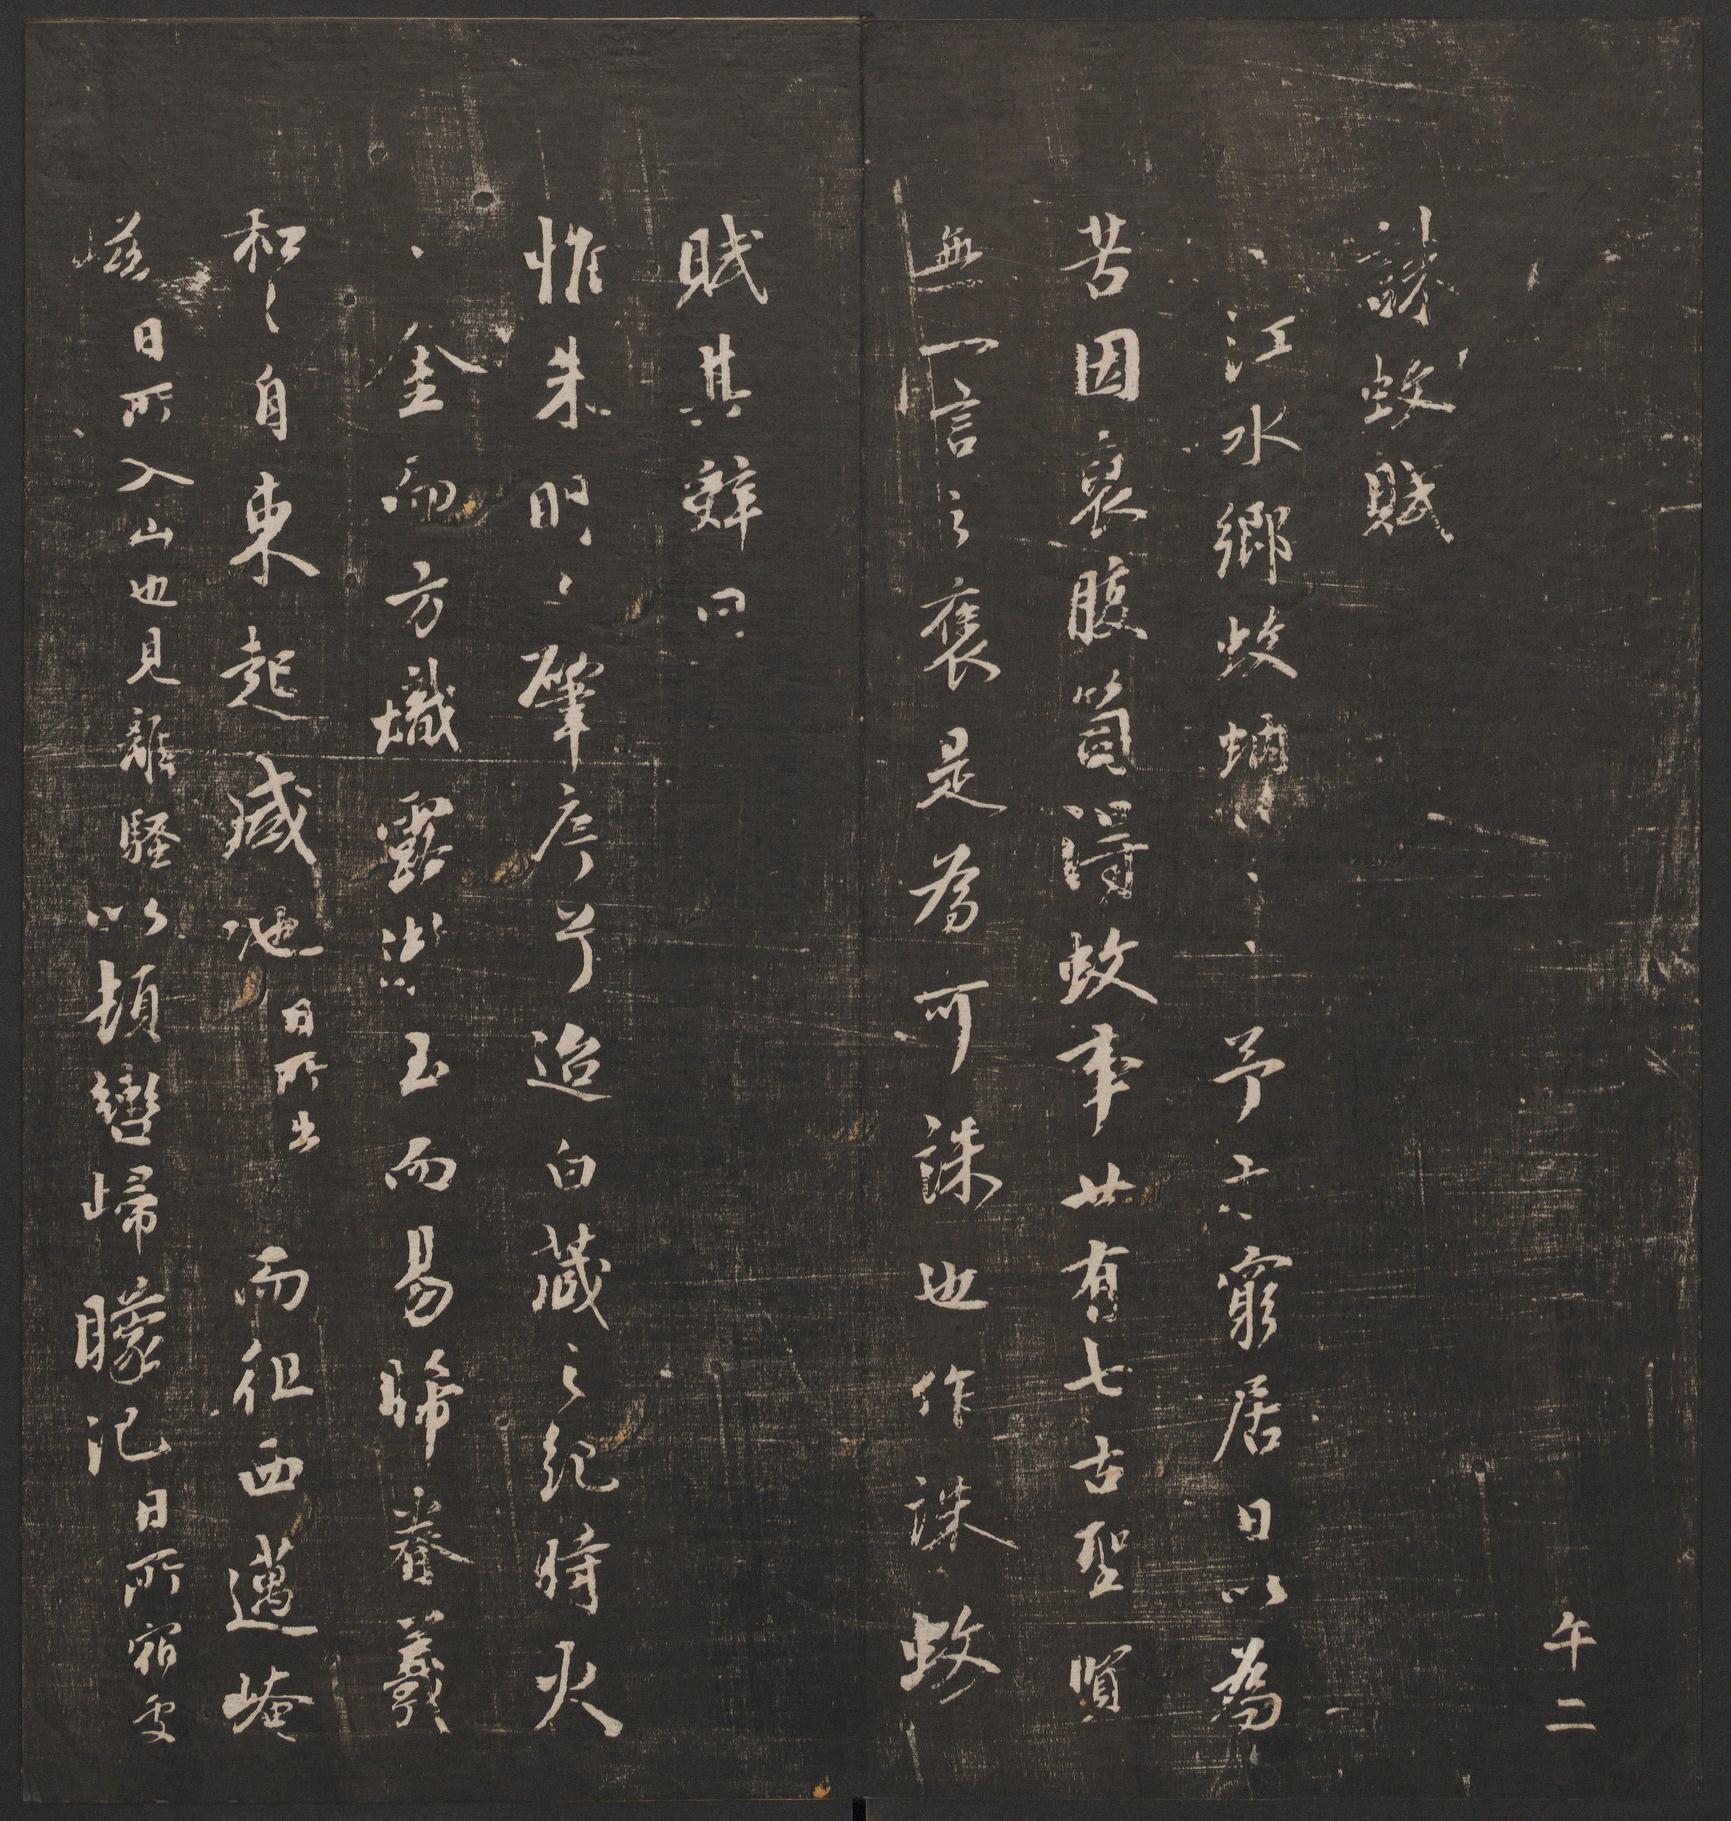 午二
誅蚊賦
江水鄉蚊蚋予亦窮居日以為
苦因裒腹笥得蚊事廿有七古聖賢
無一言之褒是為可誅也作誅蚊
賦其辞曰
惟朱明之肇序兮迨白藏之紀時火
金而方熾露泫玉而易晞眷羲
和之自東起咸池日所出而徂西邁崦
嵫日所入山也見離騷以頓轡歸矇汜日所宿處